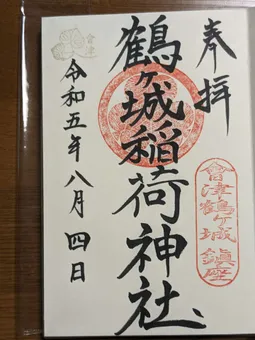 奉拝
會津鶴ヶ城鎮座
鶴ヶ城稲荷神社
令和五年八月四日
會津